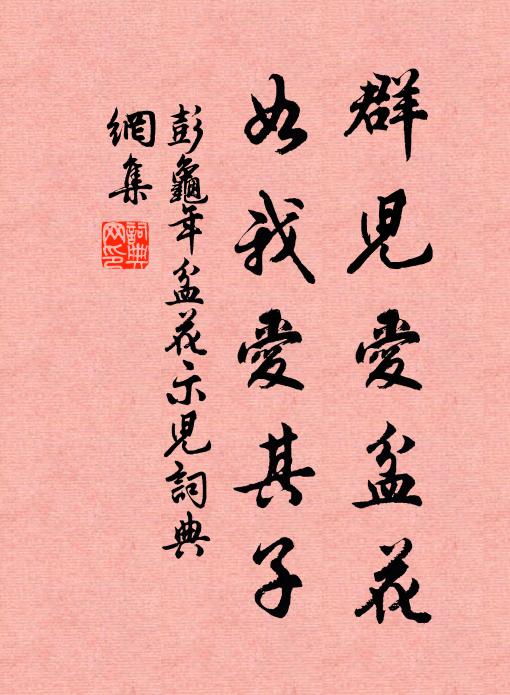 群児愛盆花
如我愛其子
彭龜年盆花示児詞典
網集
詞典
网印